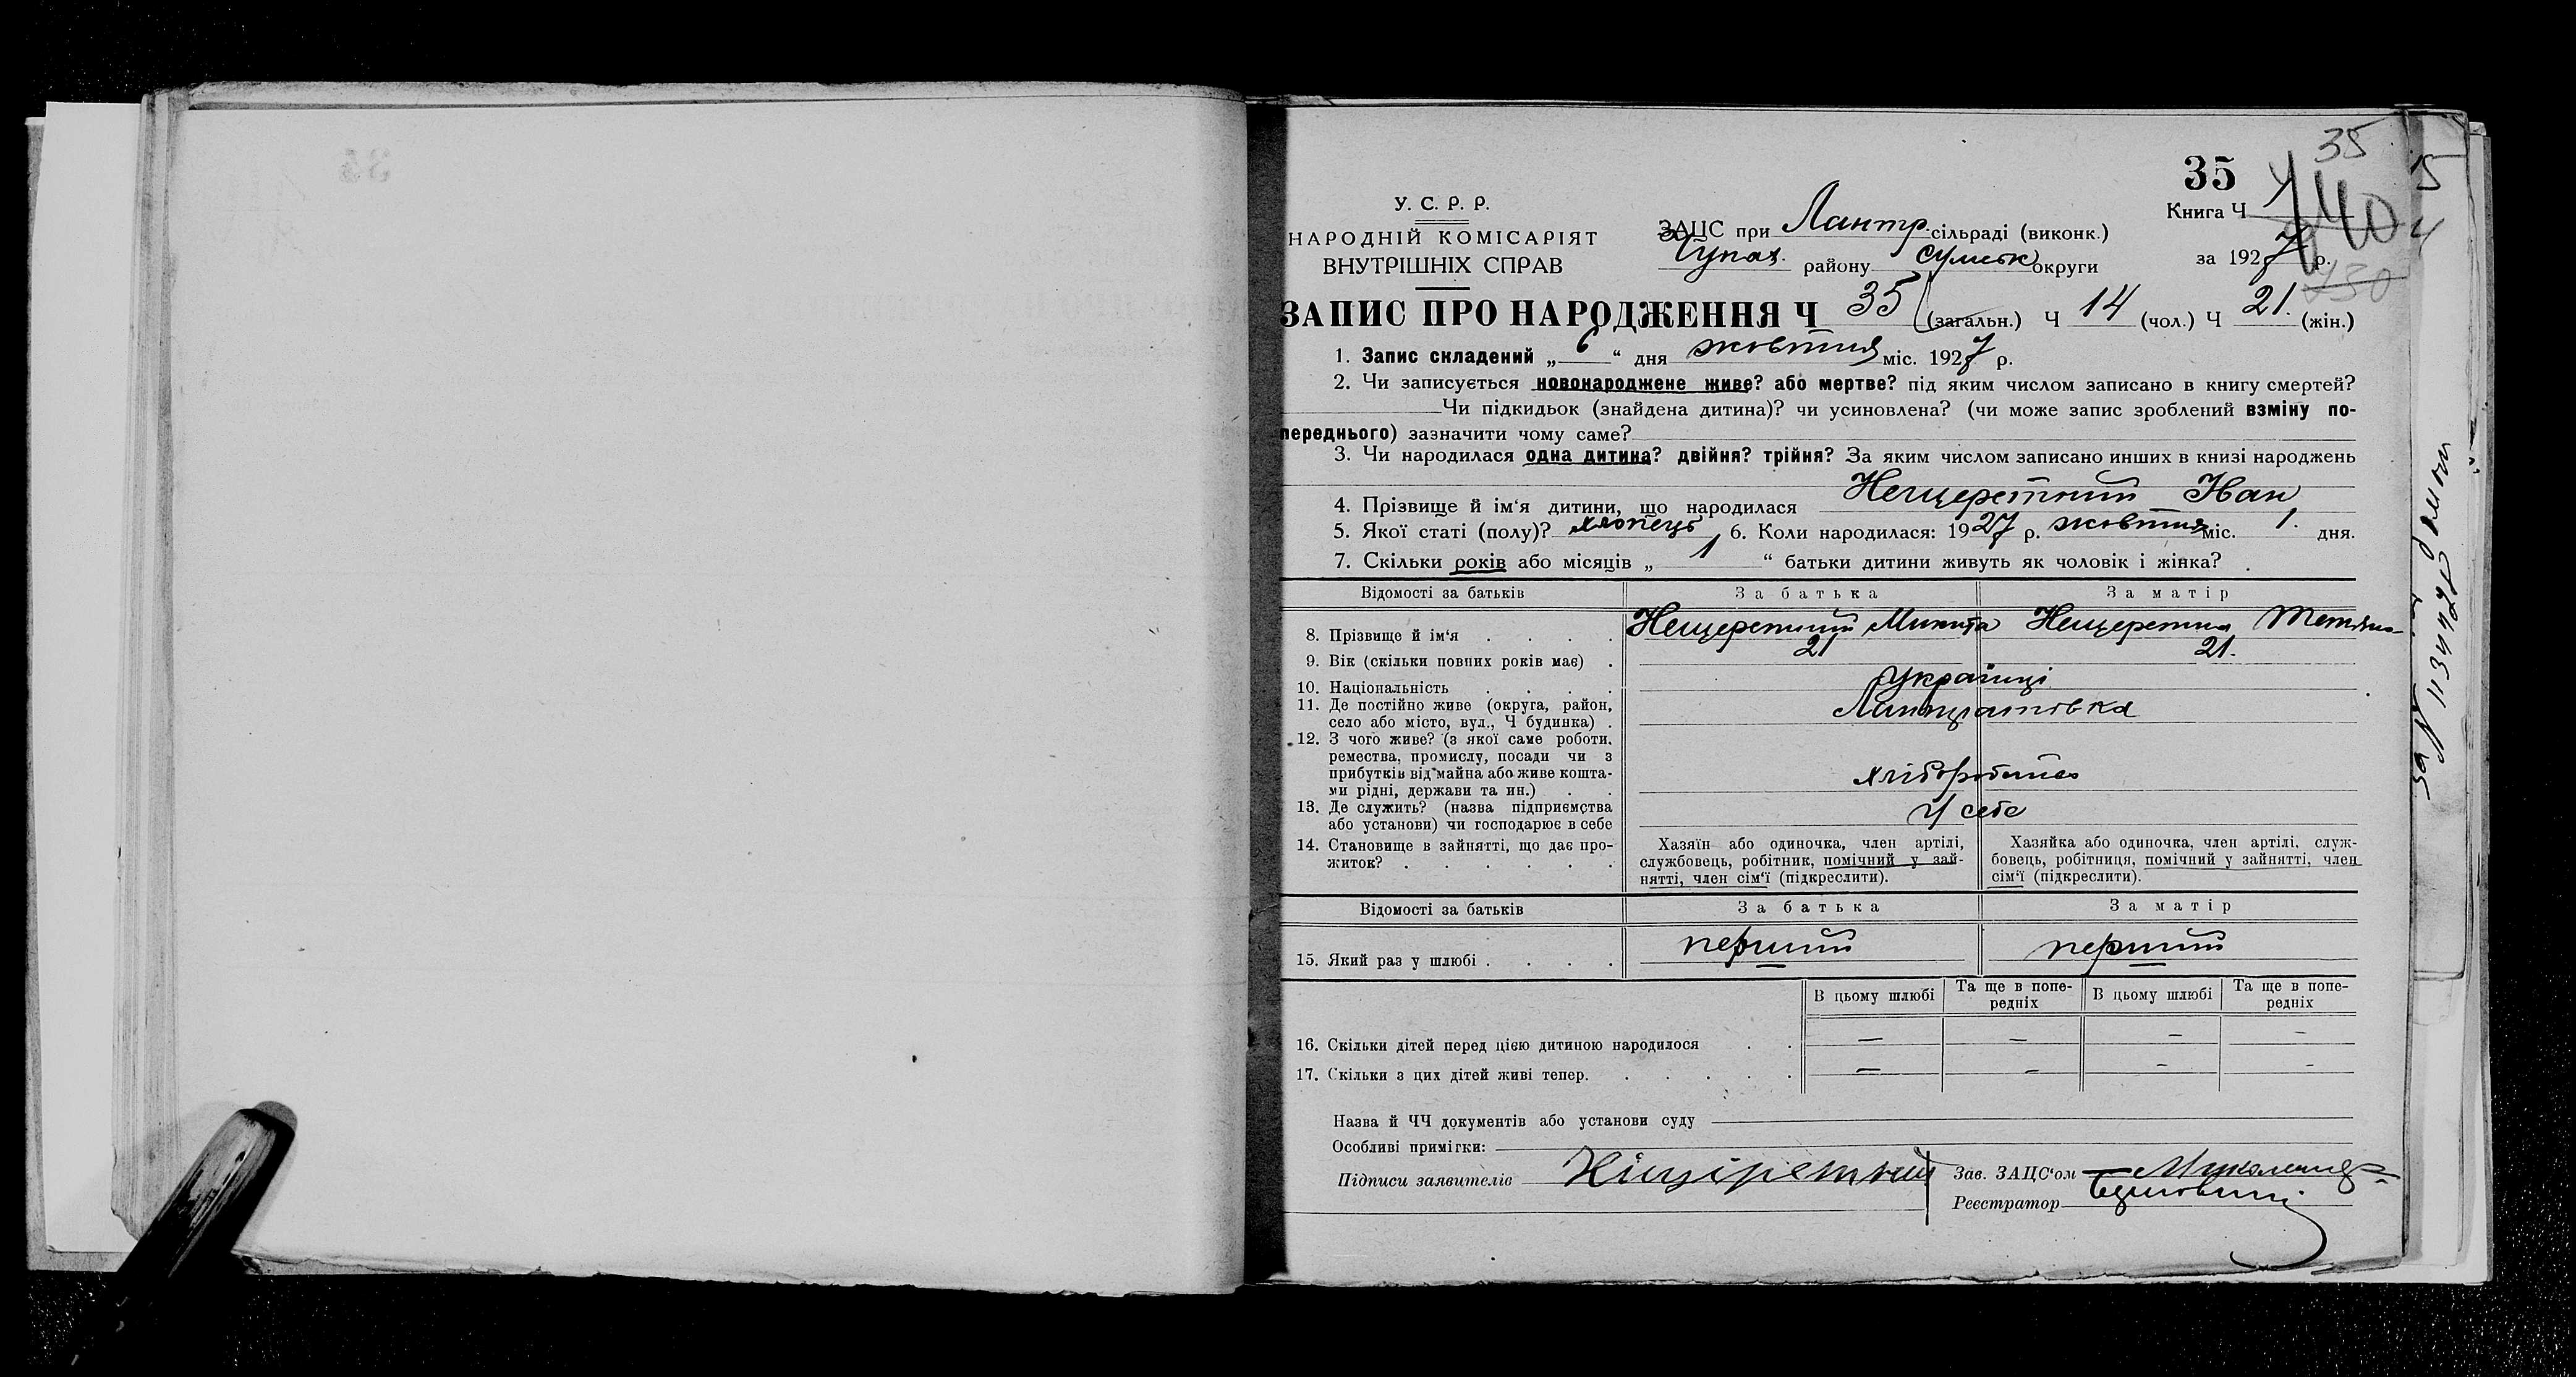 35
35
У. С. Р. Р.
НАРОДНІЙ КОМІСАРІЯТ
ВНУТРІШНІХ СПРАВ
Книга Ч
ЗАЦС при Лантр. сільраді (виконк.)
району Сумськ округи
за 1927 р.
ЗАПИС ПРО НАРОДЖЕННЯ Ч 35 (загальн.) Ч 14 (чол.) Ч 21. (жін.)
1. Запис складений „ 6 “ дня жовтня міс. 1927 р.
2. Чи записується новонароджене живе? або мертве? під яким числом записано в книгу смертей?
Чи підкидьок (знайдена дитина)? чи усиновлена? (чи може запис зроблений взміну по-
переднього) зазначити чому саме?
3. Чи народилася одна дитина? двійня? трійня? За яким числом записано инших в книзі народжень
4. Прізвище й ім‘я дитини, що народилася Нещеретний Іван
5. Якої статі (полу)? хлопець 6. Коли народилася: 1927 р. жовтня міс. 1. дня.
7. Скільки років або місяців „ 1 “ батьки дитини живуть як чоловік і жінка?
Відомості за батьків За батька За матір
8. Прізвище й ім‘я Нещеретний Микита Нещеретна Тетяна
9. Вік (скільки повних років має) 21 21.
10. Національність Українці
11. Де постійно живе (округа, район,
село або місто, вул., Ч будинка)
12. З чого живе? (з якої саме роботи,
ремества, промислу, посади чи з
прибутків від майна або живе кошта-
ми рідні, держави та ин.)
13. Де служить? (назва підприємства
або установи) чи господарює в себе У себе
14. Становище в зайнятті, що дає про-
житок?
Хазяїн або одиночка, член артілі,
службовець, робітник, помічний у зай-
нятті, член сім‘ї (підкреслити).
Хазяйка або одиночка, член артілі, служ-
бовець, робітниця, помічний у зайнятті, член
сім‘ї (підкреслити).
Відомості за батьків За батька За матір
15. Який раз у шлюбі перший перший
В цьому шлюбі Та ще в попе-
редніх В цьому шлюбі Та ще в попе-
редніх
16. Скільки дітей перед цією дитиною народилося — — — —
17. Скільки з цих дітей живі тепер. — — — —
Назва й ЧЧ документів або установи суду
Особливі примітки:
Підписи заявителів Ніщіретний Зав. ЗАЦС‘ом
Реєстратор